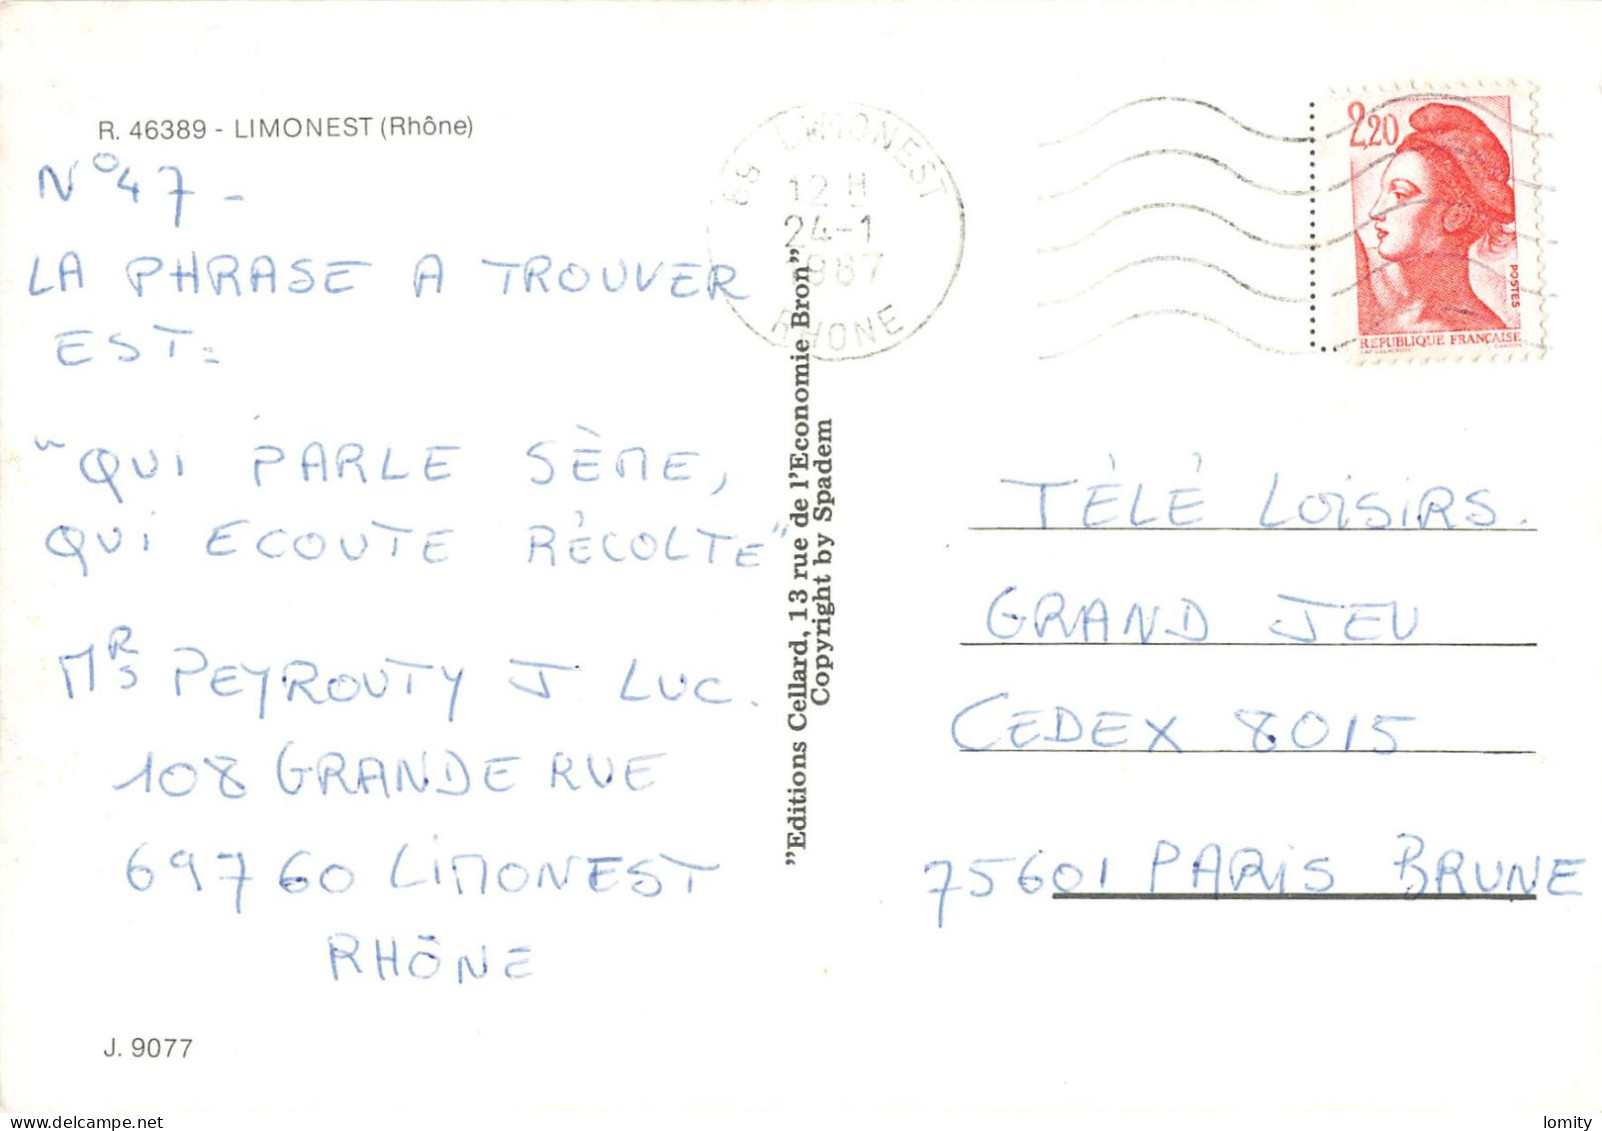 R. 46389 - LIMONEST (Rhône)
N° 47 -
LA PHRASE A TROUVER
EST:
"QUI PARLE SÈME,
QUI ECOUTE RÉCOLTE"
MRS PEYROUTY J LUC.
108 GRANDE RUE
69760 LIMONEST
RHÔNE
J. 9077
"Editions Cellard, 13 rue de l'Economie Bron"
Copyright by Spadem
69 LIMONEST
12 H
24-1
1987
RHONE
2,20
POSTES
REPUBLIQUE FRANÇAISE
TÉLÉ LOISIRS.
GRAND JEU
CEDEX 8015
75601 PARIS BRUNE
delcampe.net
lomity